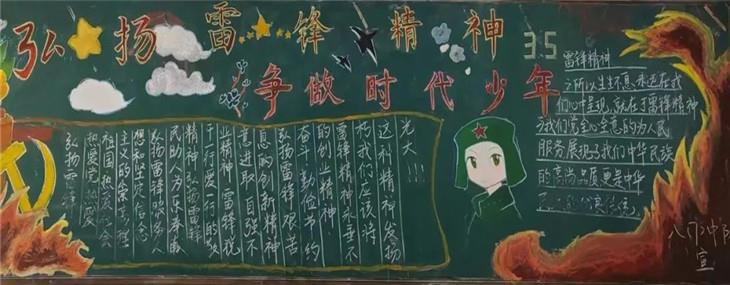 弘扬雷锋精神
争做时代少年
35
弘扬雷锋
热爱党热爱
祖国热爱社会
主义的崇高理
想和坚定信念
弘扬雷锋服务人
民助人为乐奉献
精神弘扬雷锋
干一行爱一行的敬
业精神 雷锋锐
意进取 自强不
息的创新精神
弘扬雷锋艰苦
奋斗勤俭节约
的创业精神
雷锋精神永垂不
朽我们应该将
这种精神发扬
光大!!!
雷锋精神
之所以生生不息永远在我
们心中呈现,就在于雷锋精神
为我们党全心全意的为人民
服务展现了我们中华民族
的高尚品质更是中华
宣